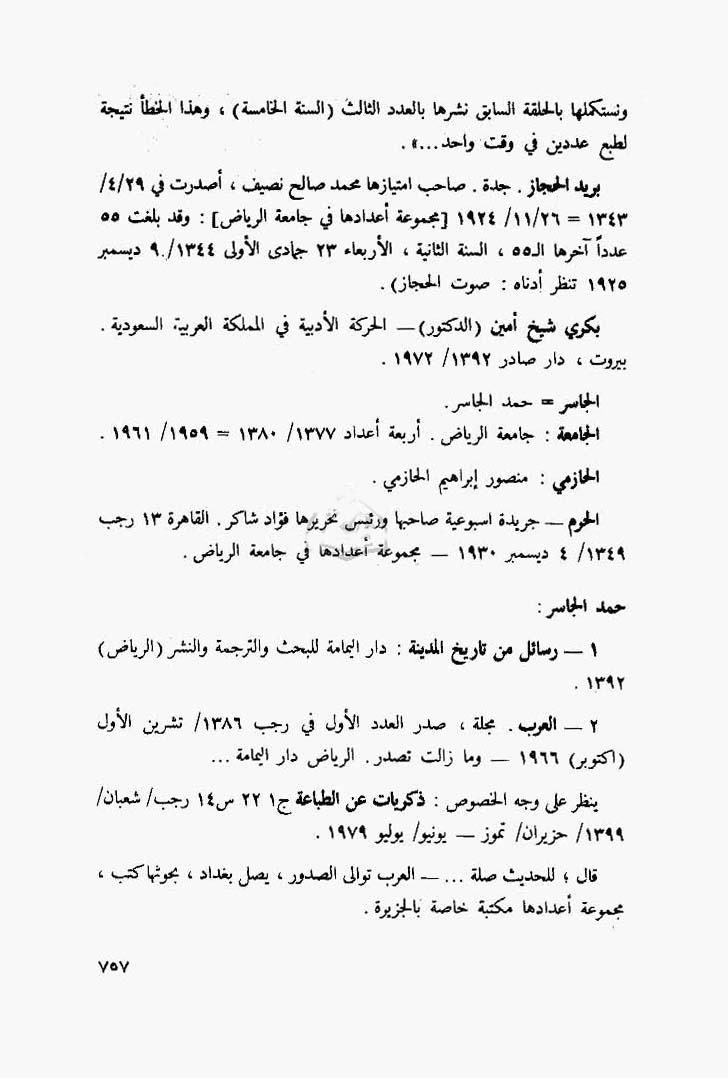 ونستكملها بالحلقة السابق نشرها بالعدد الثالث (السنة الخامسة) ، وهذا الخطأ نتيجة
لطبع عددين في وقت واحد...» .
بريد الحجاز . جدة . صاحب امتيازها محمد صالح نصيف ، أصدرت في ٢٩/ ٤/
١٣٤٣ = ٢٦/ ١١/ ١٩٢٤ [مجموعة أعدادها في جامعة الرياض] : وقد بلغت ٥٥
عدداً آخرها الـ٥٥ ، السنة الثانية ، الأربعاء ٢٣ جمادى الأولى ١٣٤٤/ ٩. ديسمبر
١٩٢٥ تنظر أدناه : صوت الحجاز) .
بكري شيخ أمين (الدكتور) — الحركة الأدبية في المملكة العربية السعودية .
بيروت ، دار صادر ١٣٩٢/ ١٩٧٢ .
الجاسر = حمد الجاسر.
الجامعة : جامعة الرياض . أربعة أعداد ١٣٧٧/ ١٣٨٠ = ١٩٥٩/ ١٩٦١ .
الحازمي : منصور إبراهيم الحازمي .
الحرم — جريدة اسبوعية صاحبها ورئيس تحريرها فؤاد شاكر . القاهرة ١٣ رجب
١٣٤٩/ ٤ ديسمبر ١٩٣٠ — مجموعة أعدادها في جامعة الرياض .
حمد الجاسر :
١ — رسائل من تاريخ المدينة : دار اليمامة للبحث والترجمة والنشر (الرياض)
١٣٩٢ .
٢ — العرب . مجلة ، صدر العدد الأول في رجب ١٣٨٦/ تشرين الأول
(اكتوبر) ١٩٦٦ — وما زالت تصدر . الرياض دار اليمامة ...
ينظر على وجه الخصوص : ذكريات عن الطباعة ج١ ٢٢ س١٤ رجب/ شعبان/
١٣٩٩/ حزيران/ تموز — يونيو/ يوليو ١٩٧٩ .
قال ؛ للحديث صلة ... — العرب توالى الصدور ، يصل بغداد ، بحوثها كتب ،
مجموعة أعدادها مكتبة خاصة بالجزيرة .
٧٥٧